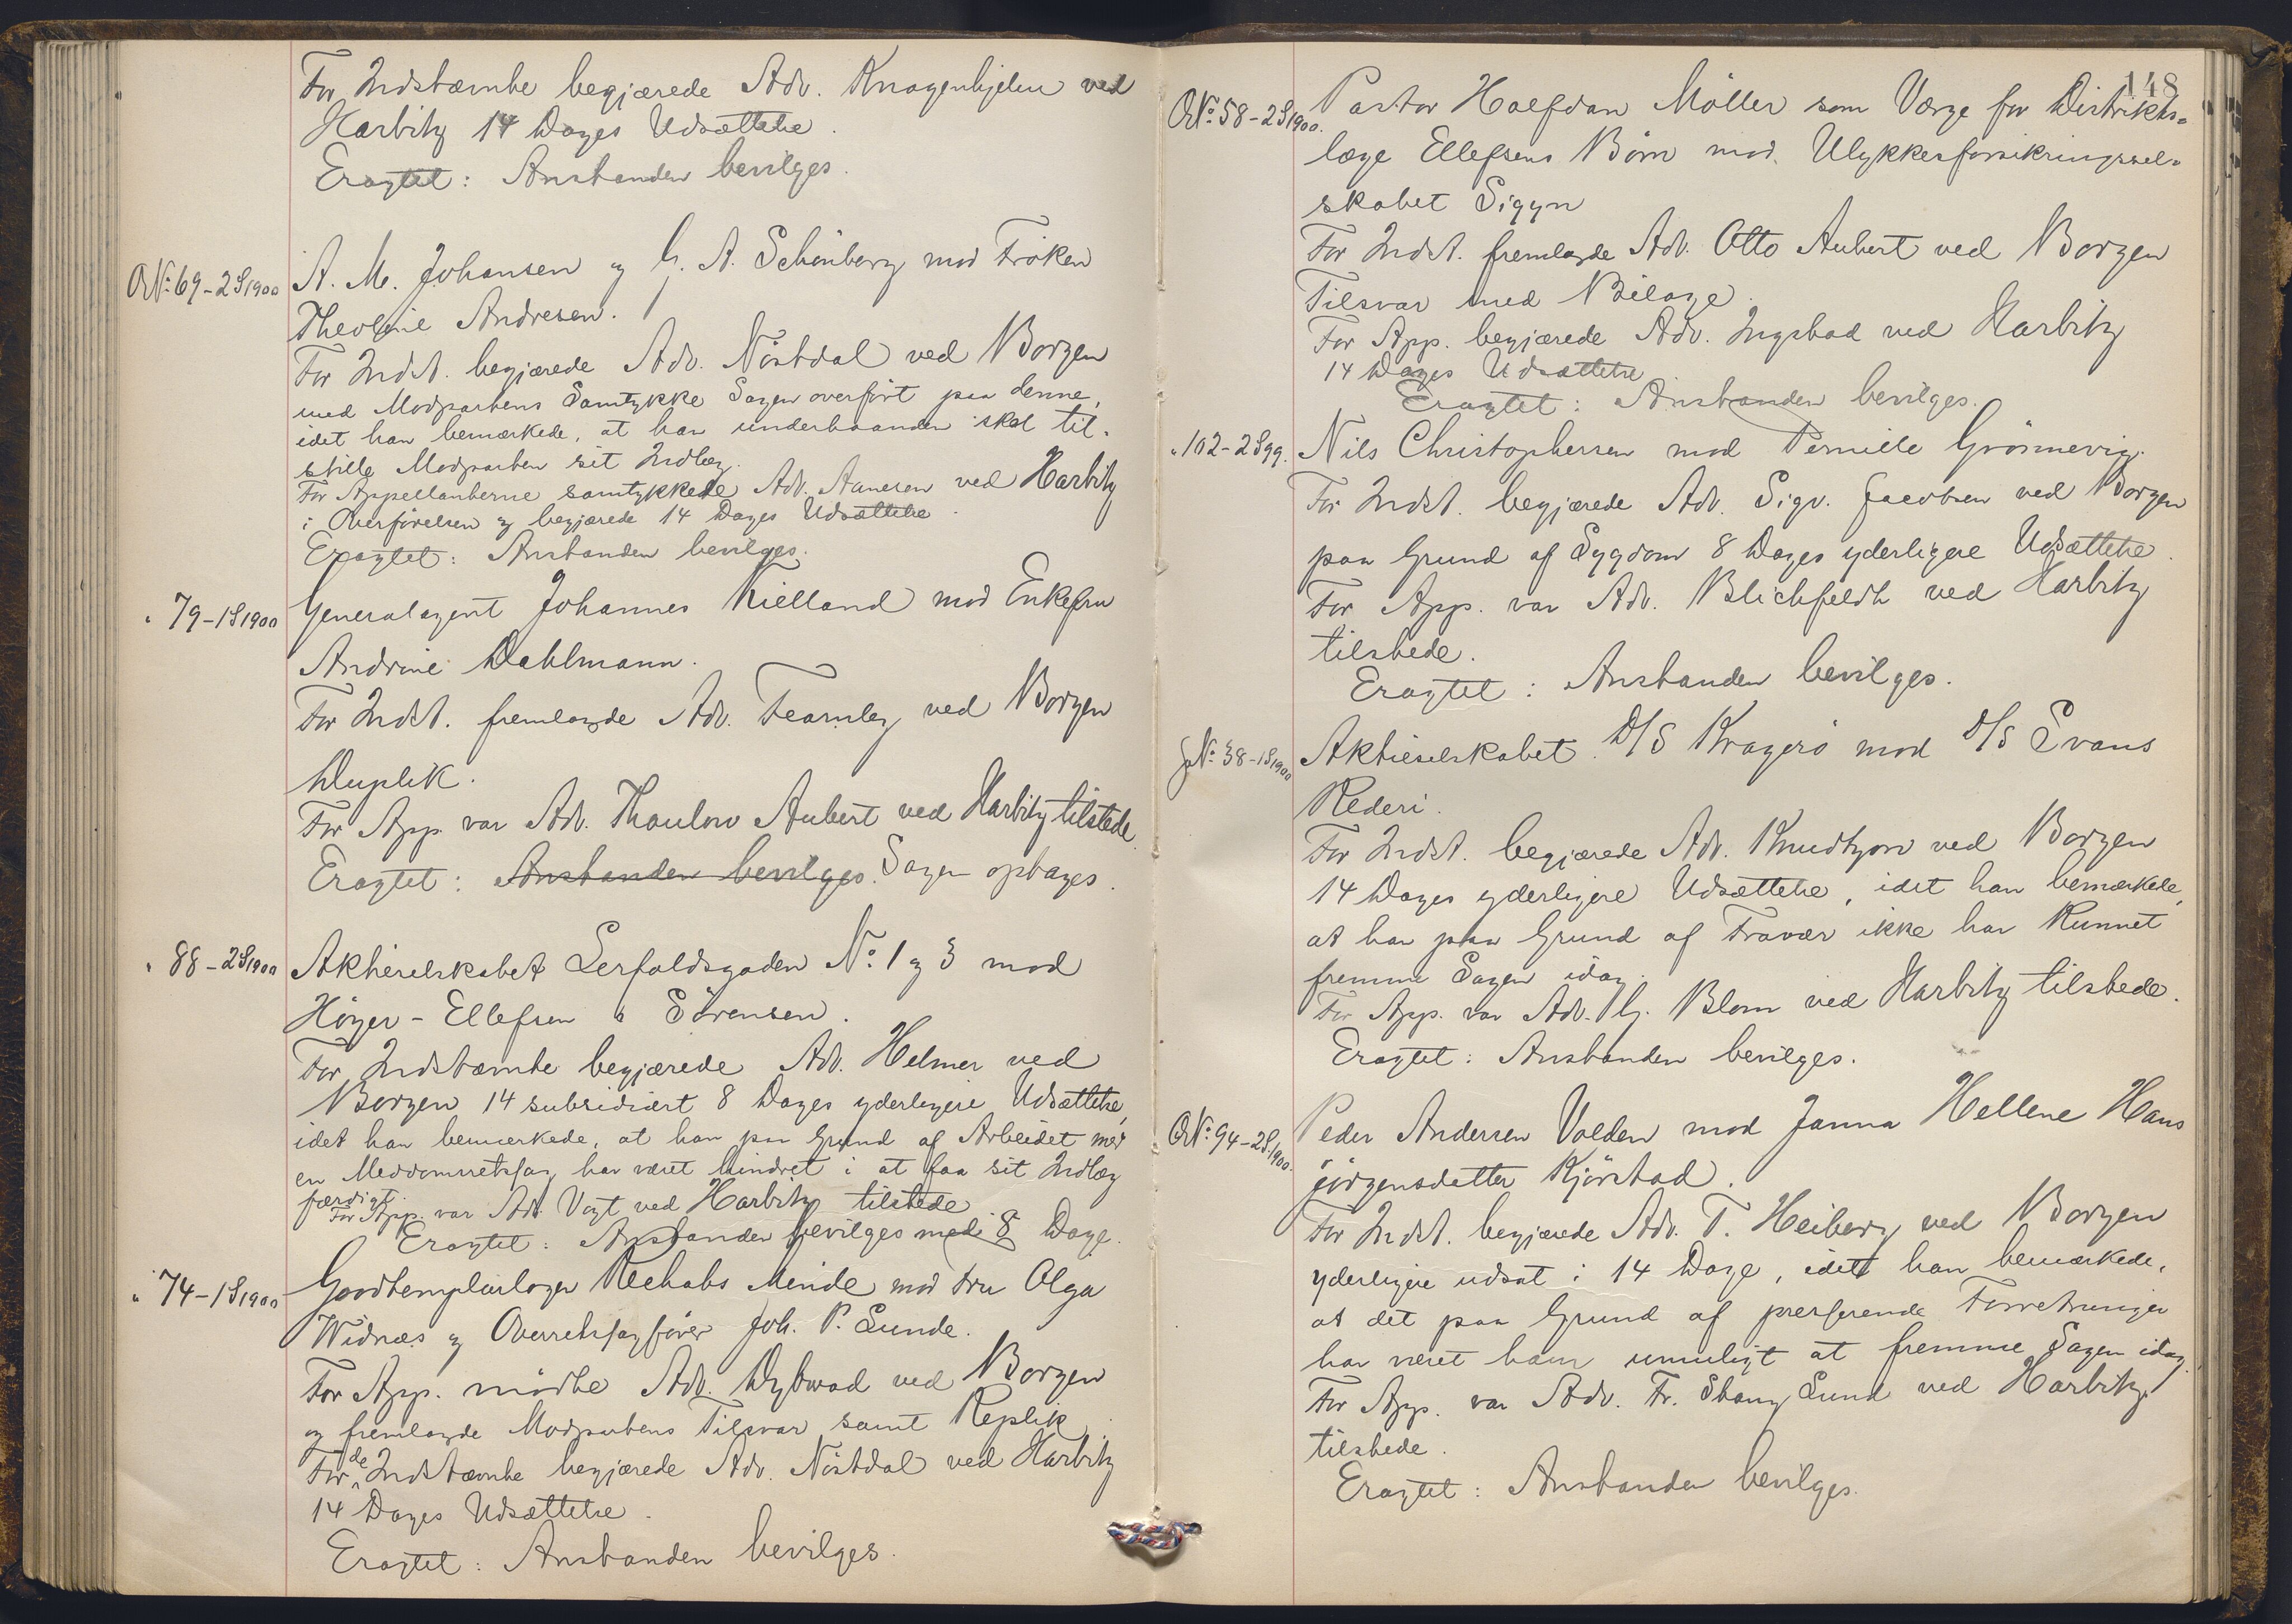 For Indstævnte begjærede Adv. Knagenhjelm ved
Harbitz 14 Dages Udsættelse.
Eragtet: Anstanden bevilges.
O.№ 69-2S1900
A. M. Johansen og G. A. Schönberg mod Fröken
Theoline Andresen.
For Indst. begjærede Adv. Nöstdal ved Borgen
med Modpartens Samtykke Sagen overfört paa denne,
idet han bemærkede, at han underhaanden skal til-
stille Modparten sit Indlæg.
For Appellanterne samtykkede Adv. Aanesen ved Harbitz
i Overförelsen og begjærede 14 Dages Udsættelse.
Eragtet: Anstanden bevilges.
" 79-1S1900
Generalagent Johannes Kielland mod Enkefru
Andrine Dahlmann.
For Indst. fremlagde Adv. Fearnley ved Borgen
Duplik.
For App. var Adv. Thaulow Aubert ved Harbitz tilstede.
Eragtet: Anstanden bevilges. Sagen optages.
" 88-2S1900
Aktieselskabet Lerfaldsgaden № 1 og 3 mod
Höyer-Ellefsen & Sörensen.
For Indstævnte begjærede Adv. Helmer ved
Borgen 14 subsidiært 8 Dages yderligere Udsættelse,
idet han bemærkede, at han paa Grund af Arbeidet med
en Meddomsretssag har været hindret i at faa sit Indlæg
færdigt.
For App. var Adv. Vogt ved Harbitz tilstede
Eragtet: Anstanden bevilges med 8 Dage.
" 74-1S1900
Goodtemplarlogen Rechabs Minde mod Fru Olga
Widnæs og Overretssagförer Joh. P. Lunde.
For App. mödte Adv. Dybwad ved Borgen
og fremlagde Modpartens Tilsvar samt Replik.
For de Indstævnte begjærede Adv. Nöstdal ved Harbitz
14 Dages Udsættelse.
Eragtet: Anstanden bevilges.
148
O.№ 58-2S1900.
Pastor Halfdan Möller som Værge for Distrikts-
læge Ellefsens Börn mod Ulykkesforsikringssel-
skabet Sigyn
For Indst. fremlagde Adv. Otto Aubert ved Borgen
Tilsvar med Bilage.
For App. begjærede Adv. Ingstad ved Harbitz
14 Dages Udsættelse
Eragtet: Anstanden bevilges.
" 102-2S99.
Nils Christophersen mod Pernille Grönnevig.
For Indst. begjærede Adv. Sigv. Jacobsen ved Borgen
paa Grund af Sygdom 8 Dages yderligere Udsættelse.
For App. var Adv. Blichfeldt ved Harbitz
tilstede.
Eragtet: Anstanden bevilges.
№ 38-1S1900
Aktieselskabet D/S Kragerö mod D/S Svans
Rederi.
For Indst. begjærede Adv. Knudtzon ved Borgen
14 Dages yderligere Udsættelse, idet han bemærkede,
at han paa Grund af Fravær ikke har kunnet
fremme Sagen idag.
For App. var Adv. G. Blom ved Harbitz tilstede.
Eragtet: Anstanden bevilges.
O.№ 94-2S1900.
Peder Andersen Volden mod Janna Hellene Hans
jörgensdatter Kjörstad.
For Indst. begjærede Adv. T. Heiberg ved Borgen
yderligere udsat i 14 Dage, idet han bemærkede,
at det paa Grund af presserende Forretninger
har været ham umuligt at fremme Sagen idag.
For App. var Adv. Fr. Stang Lund ved Harbitz
tilstede.
Eragtet: Anstanden bevilges.